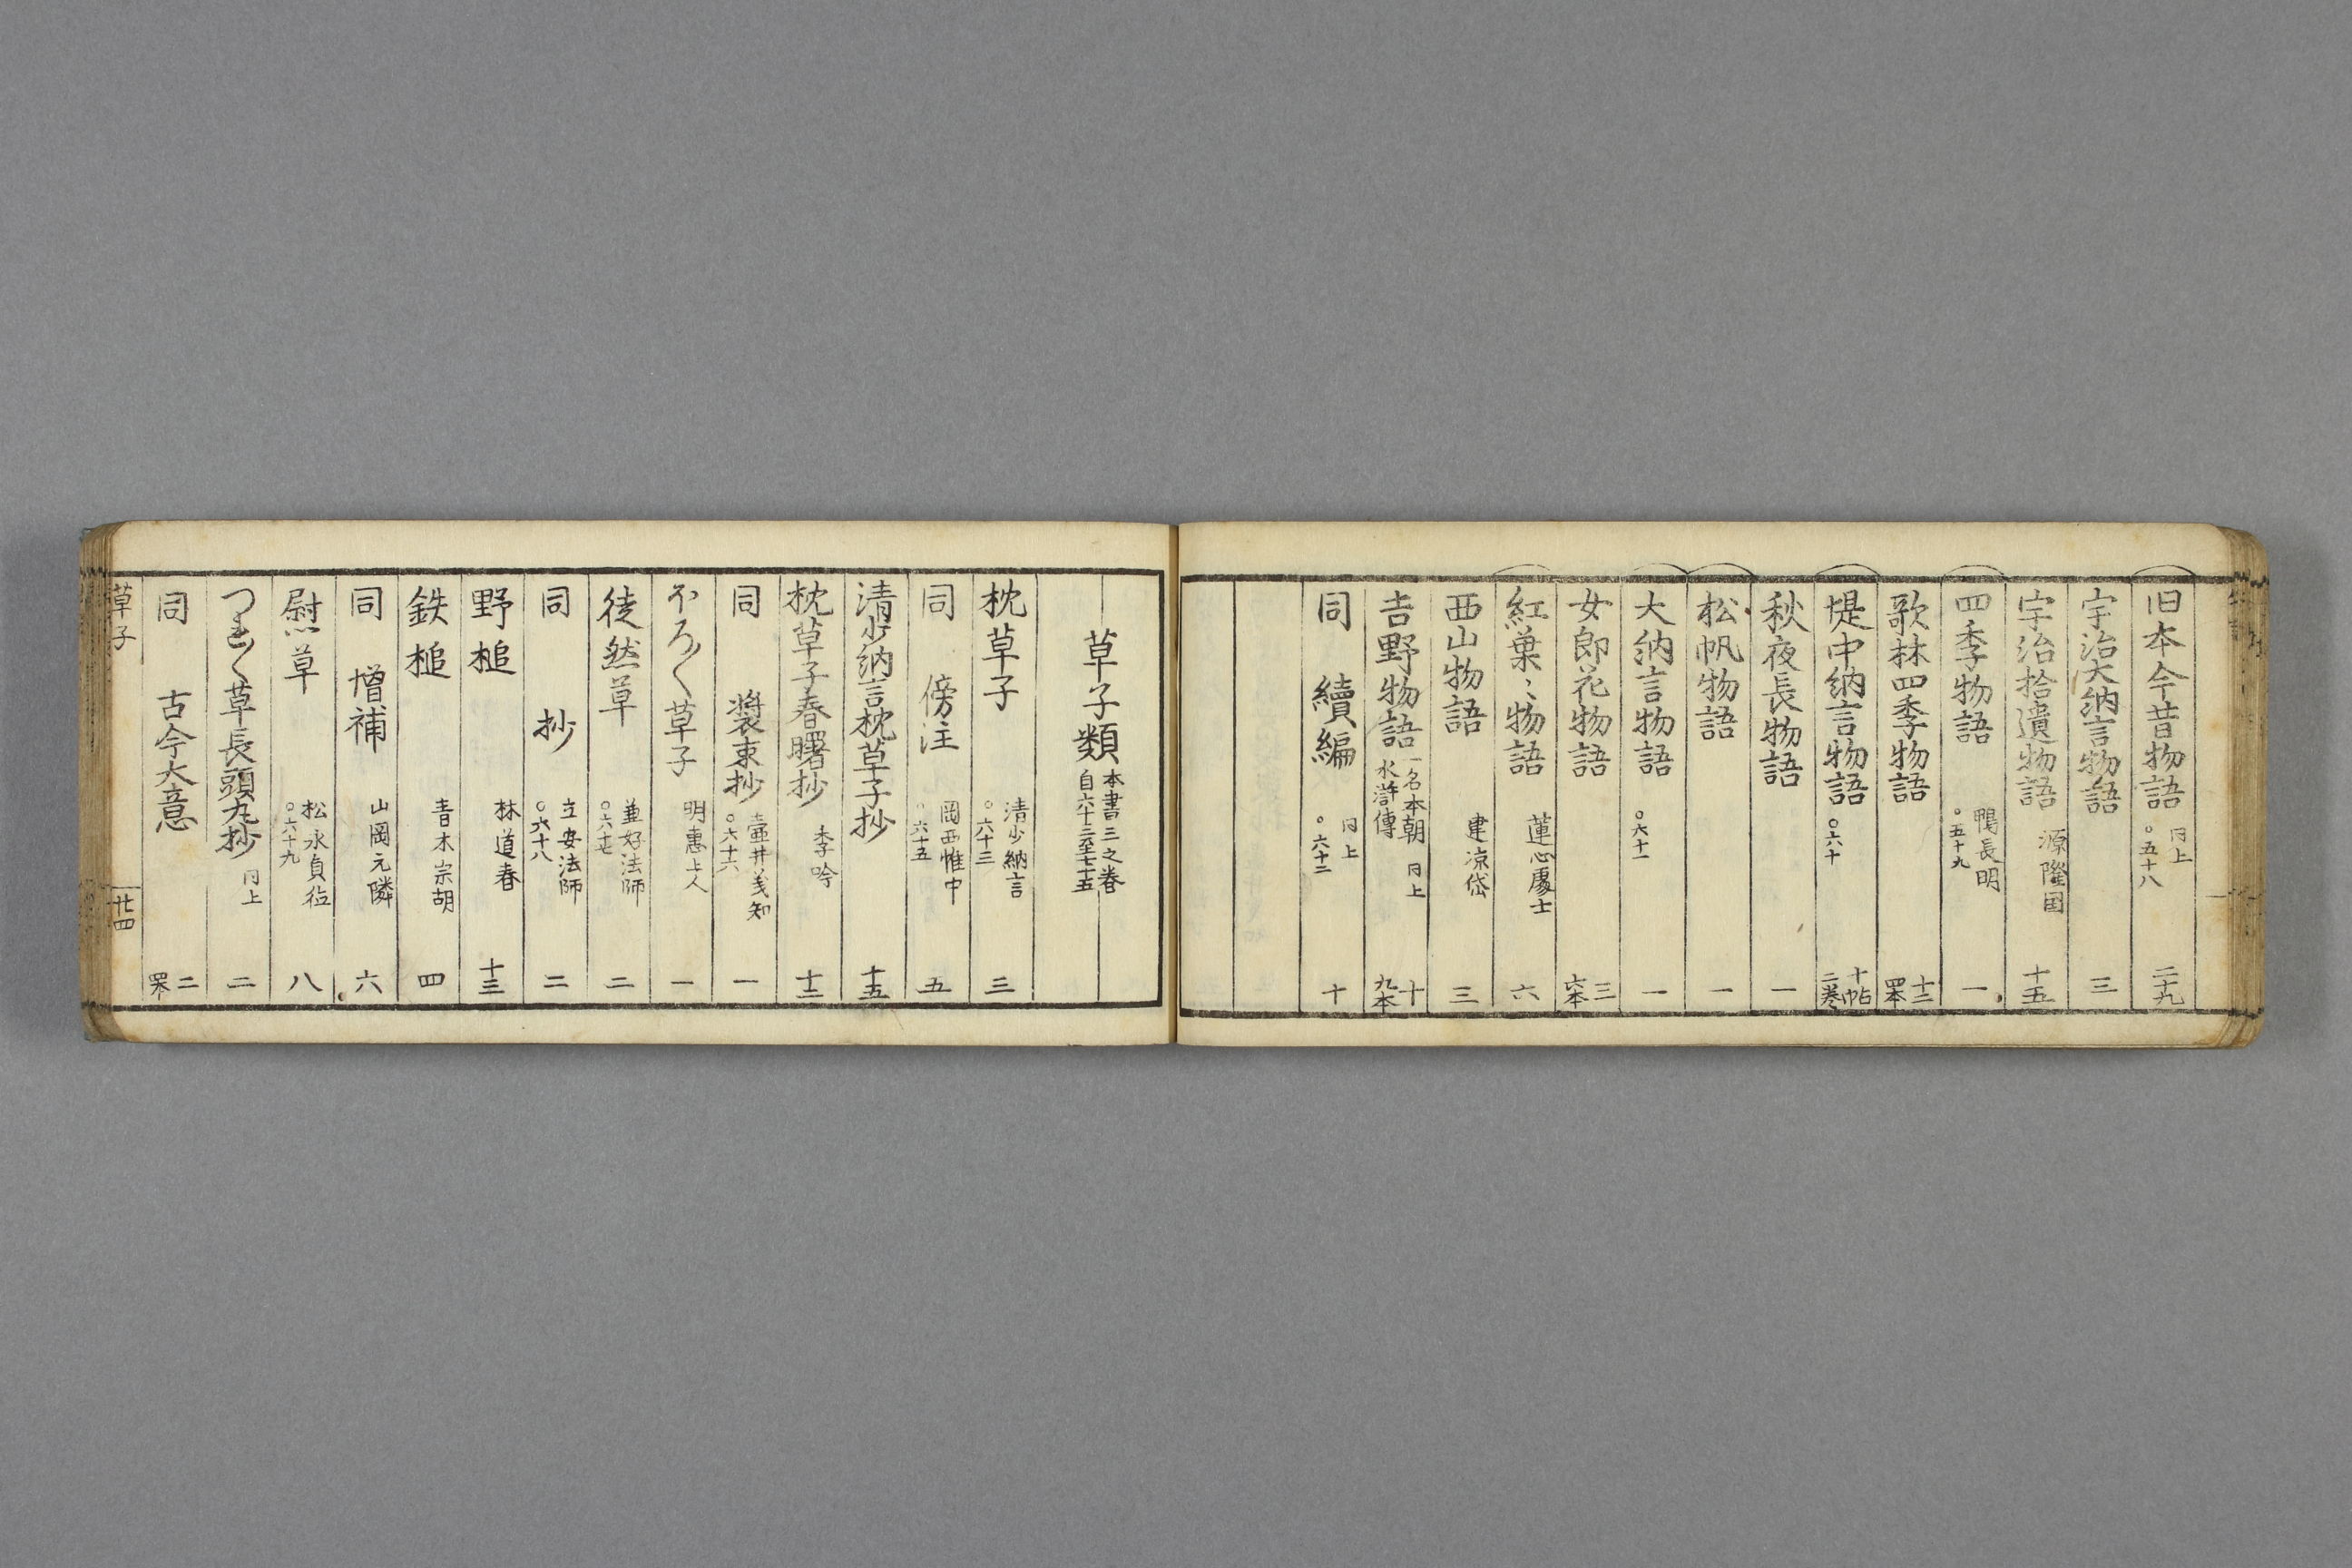 旧本今昔物語 同上 ○五十八 二十九
宇治大納言物語 三
宇治拾遺物語 源隆国 十五
四季物語 鴨長明 ○五十九 一
歌林四季物語 十三 四本
堤中納言物語 ○六十 十帖 二巻
秋夜長物語 一
松帆物語 一
大納言物語 ○六十一 一
女郎花物語 三 六本
紅菓〻物語 蓮心處士 六
西山物語 建凉岱 三
吉野物語 一名本朝水滸傳 同上 十 九本
同 續編 同上 ○六十二 十
草子類 本書三之巻 自六十三至七十五
枕草子 清少納言 ○六十三 三
同 傍注 岡西惟中 ○六十五 五
清少納言枕草子抄 十五
枕草子春曙抄 季吟 十二
同 裝束抄 壷井義知 ○六十六 一
不ろ〳〵草子 明惠上人 一
徒然草 兼好法師 ○六十七 二
同 抄 立安法師 ○六十八 二
野槌 林道春 十三
鉄槌 青木宗胡 四
同 増補 山岡元隣 六
慰草 松永貞徳 ○六十九 八
つれ〳〵草長頭丸抄 同上 二
同 古今大意 二 四本
草子
廿四